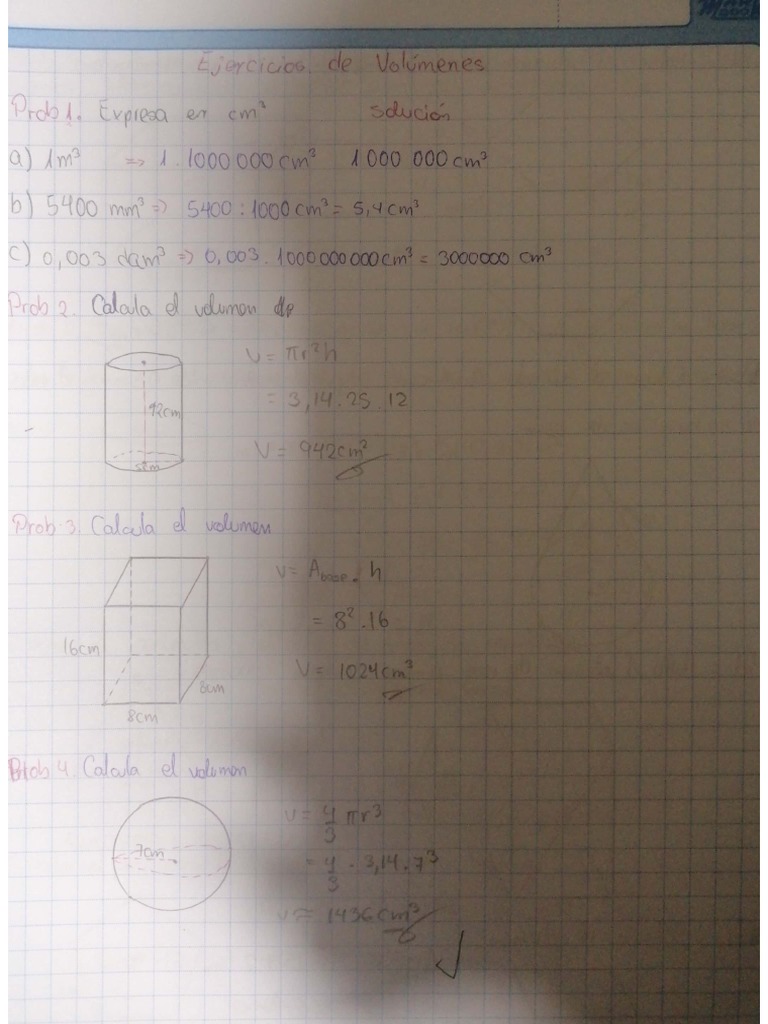 Ejercicios de Volúmenes
Prob 1. Expresa en cm³ Solución
a) 1m³ => 1 . 1000 000 cm³ 1 000 000 cm³
b) 5400 mm³ => 5400 : 1000 cm³ = 5,4 cm³
c) 0,003 dam³ => 0,003 . 1000 000 000 cm³ = 3000000 cm³
Prob 2. Calcula el volumen de
V = πr²h
= 3,14 . 25 . 12
12cm
V = 942cm²
5cm
Prob 3. Calcula el volumen
V = Abase . h
= 8² . 16
16cm
V = 1024 cm³
8cm
8cm
Prob 4. Calcula el volumen
V = 4/3 πr³
7cm
= 4/3 . 3,14 . 7³
V = 1436 cm³